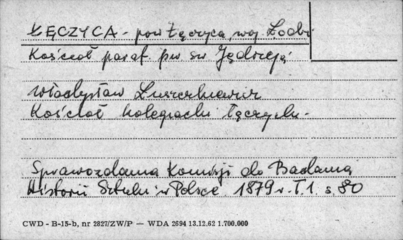 ŁĘCZYCA - pow Łęczyca, woj. Łódź
Kościół paraf. pw św Jędrzeja
Władysław Łuszczkiewicz
Kościół kolegiacki łęczycki.
Sprawozdania Komisji do Badania
Historii Sztuki w Polsce 1879 r. T. 1 s. 80
CWD - B-15-b, nr 2827/ZW/P — WDA 2694 13.12.62 1.700.000